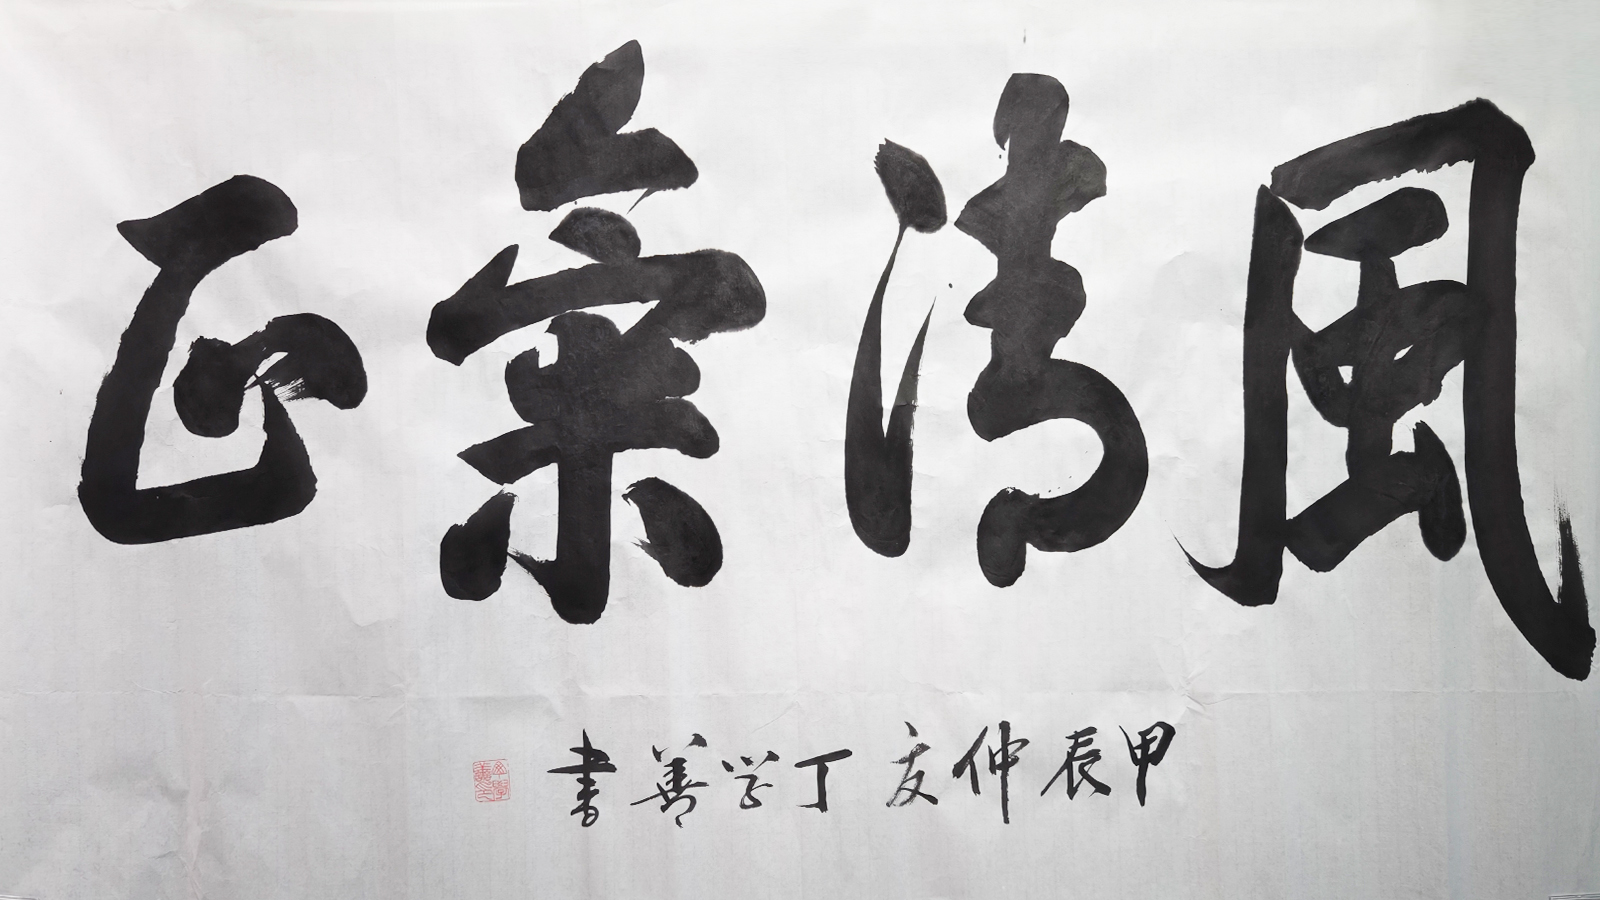 風清氣正
甲辰仲夏 丁学善書